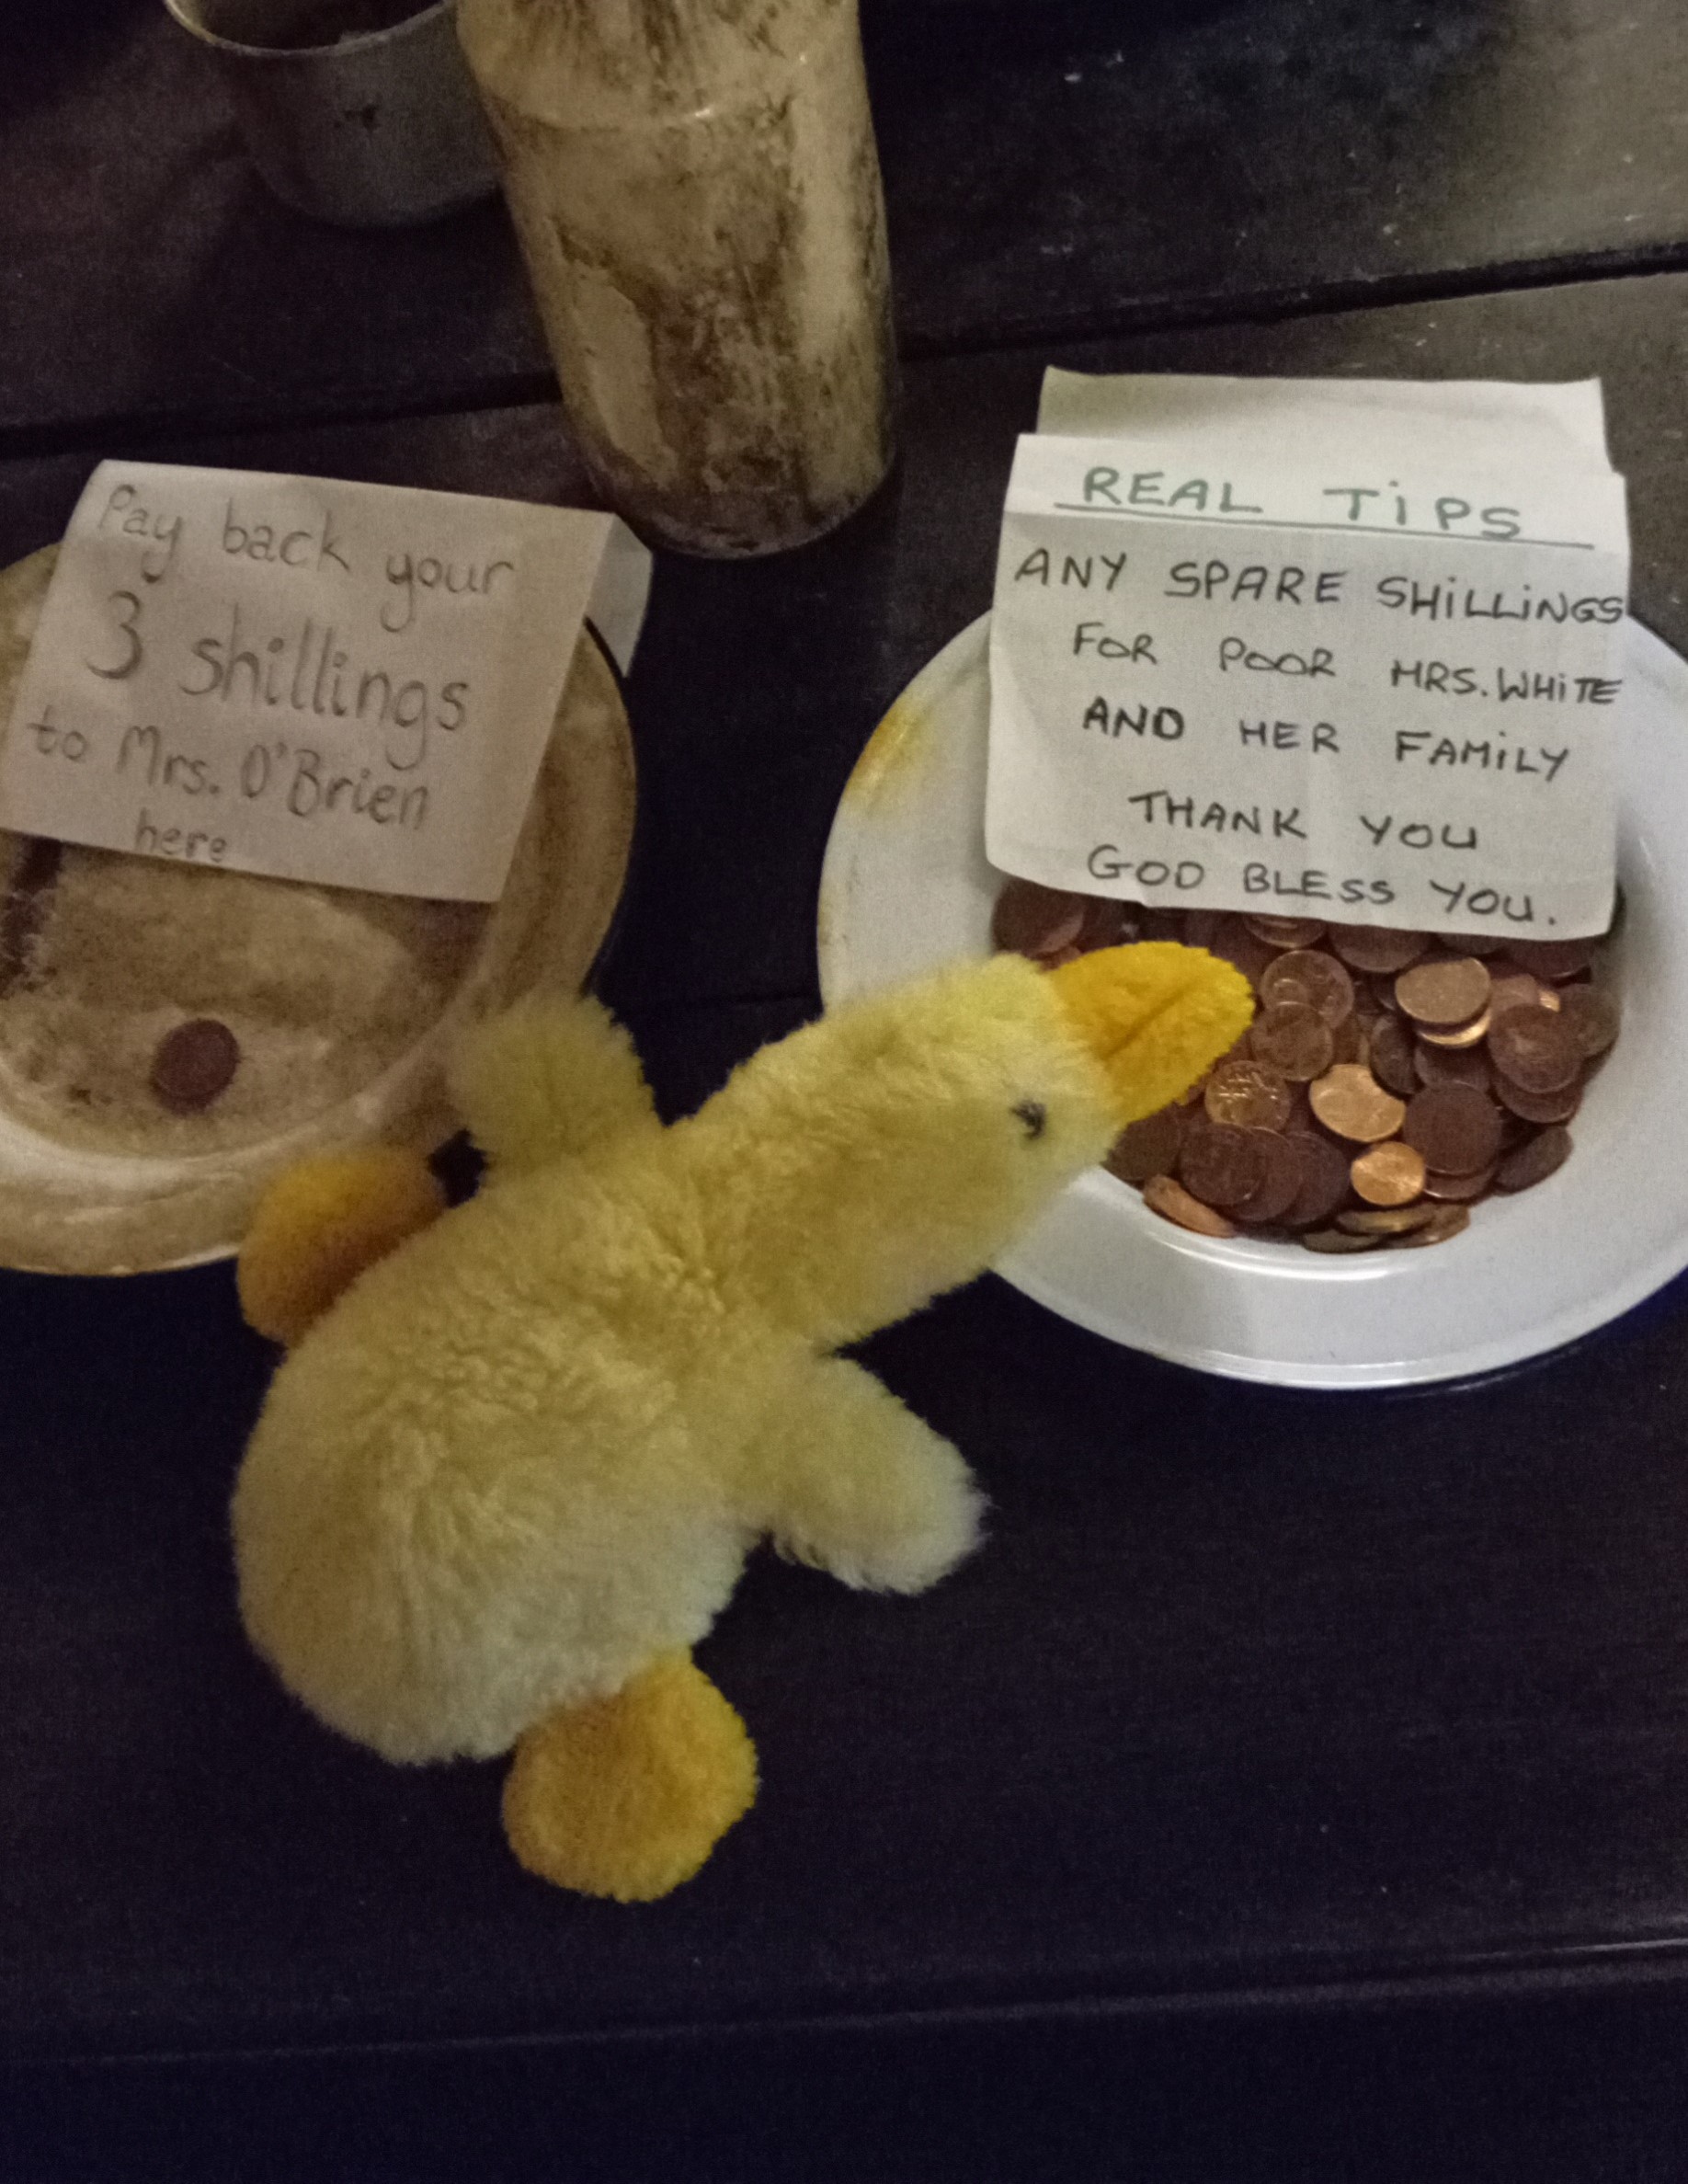 Pay back your
3 shillings
to Mrs. O'Brien
here
REAL TIPS
ANY SPARE SHILLINGS
FOR POOR MRS. WHITE
AND HER FAMILY
THANK YOU
GOD BLESS YOU.